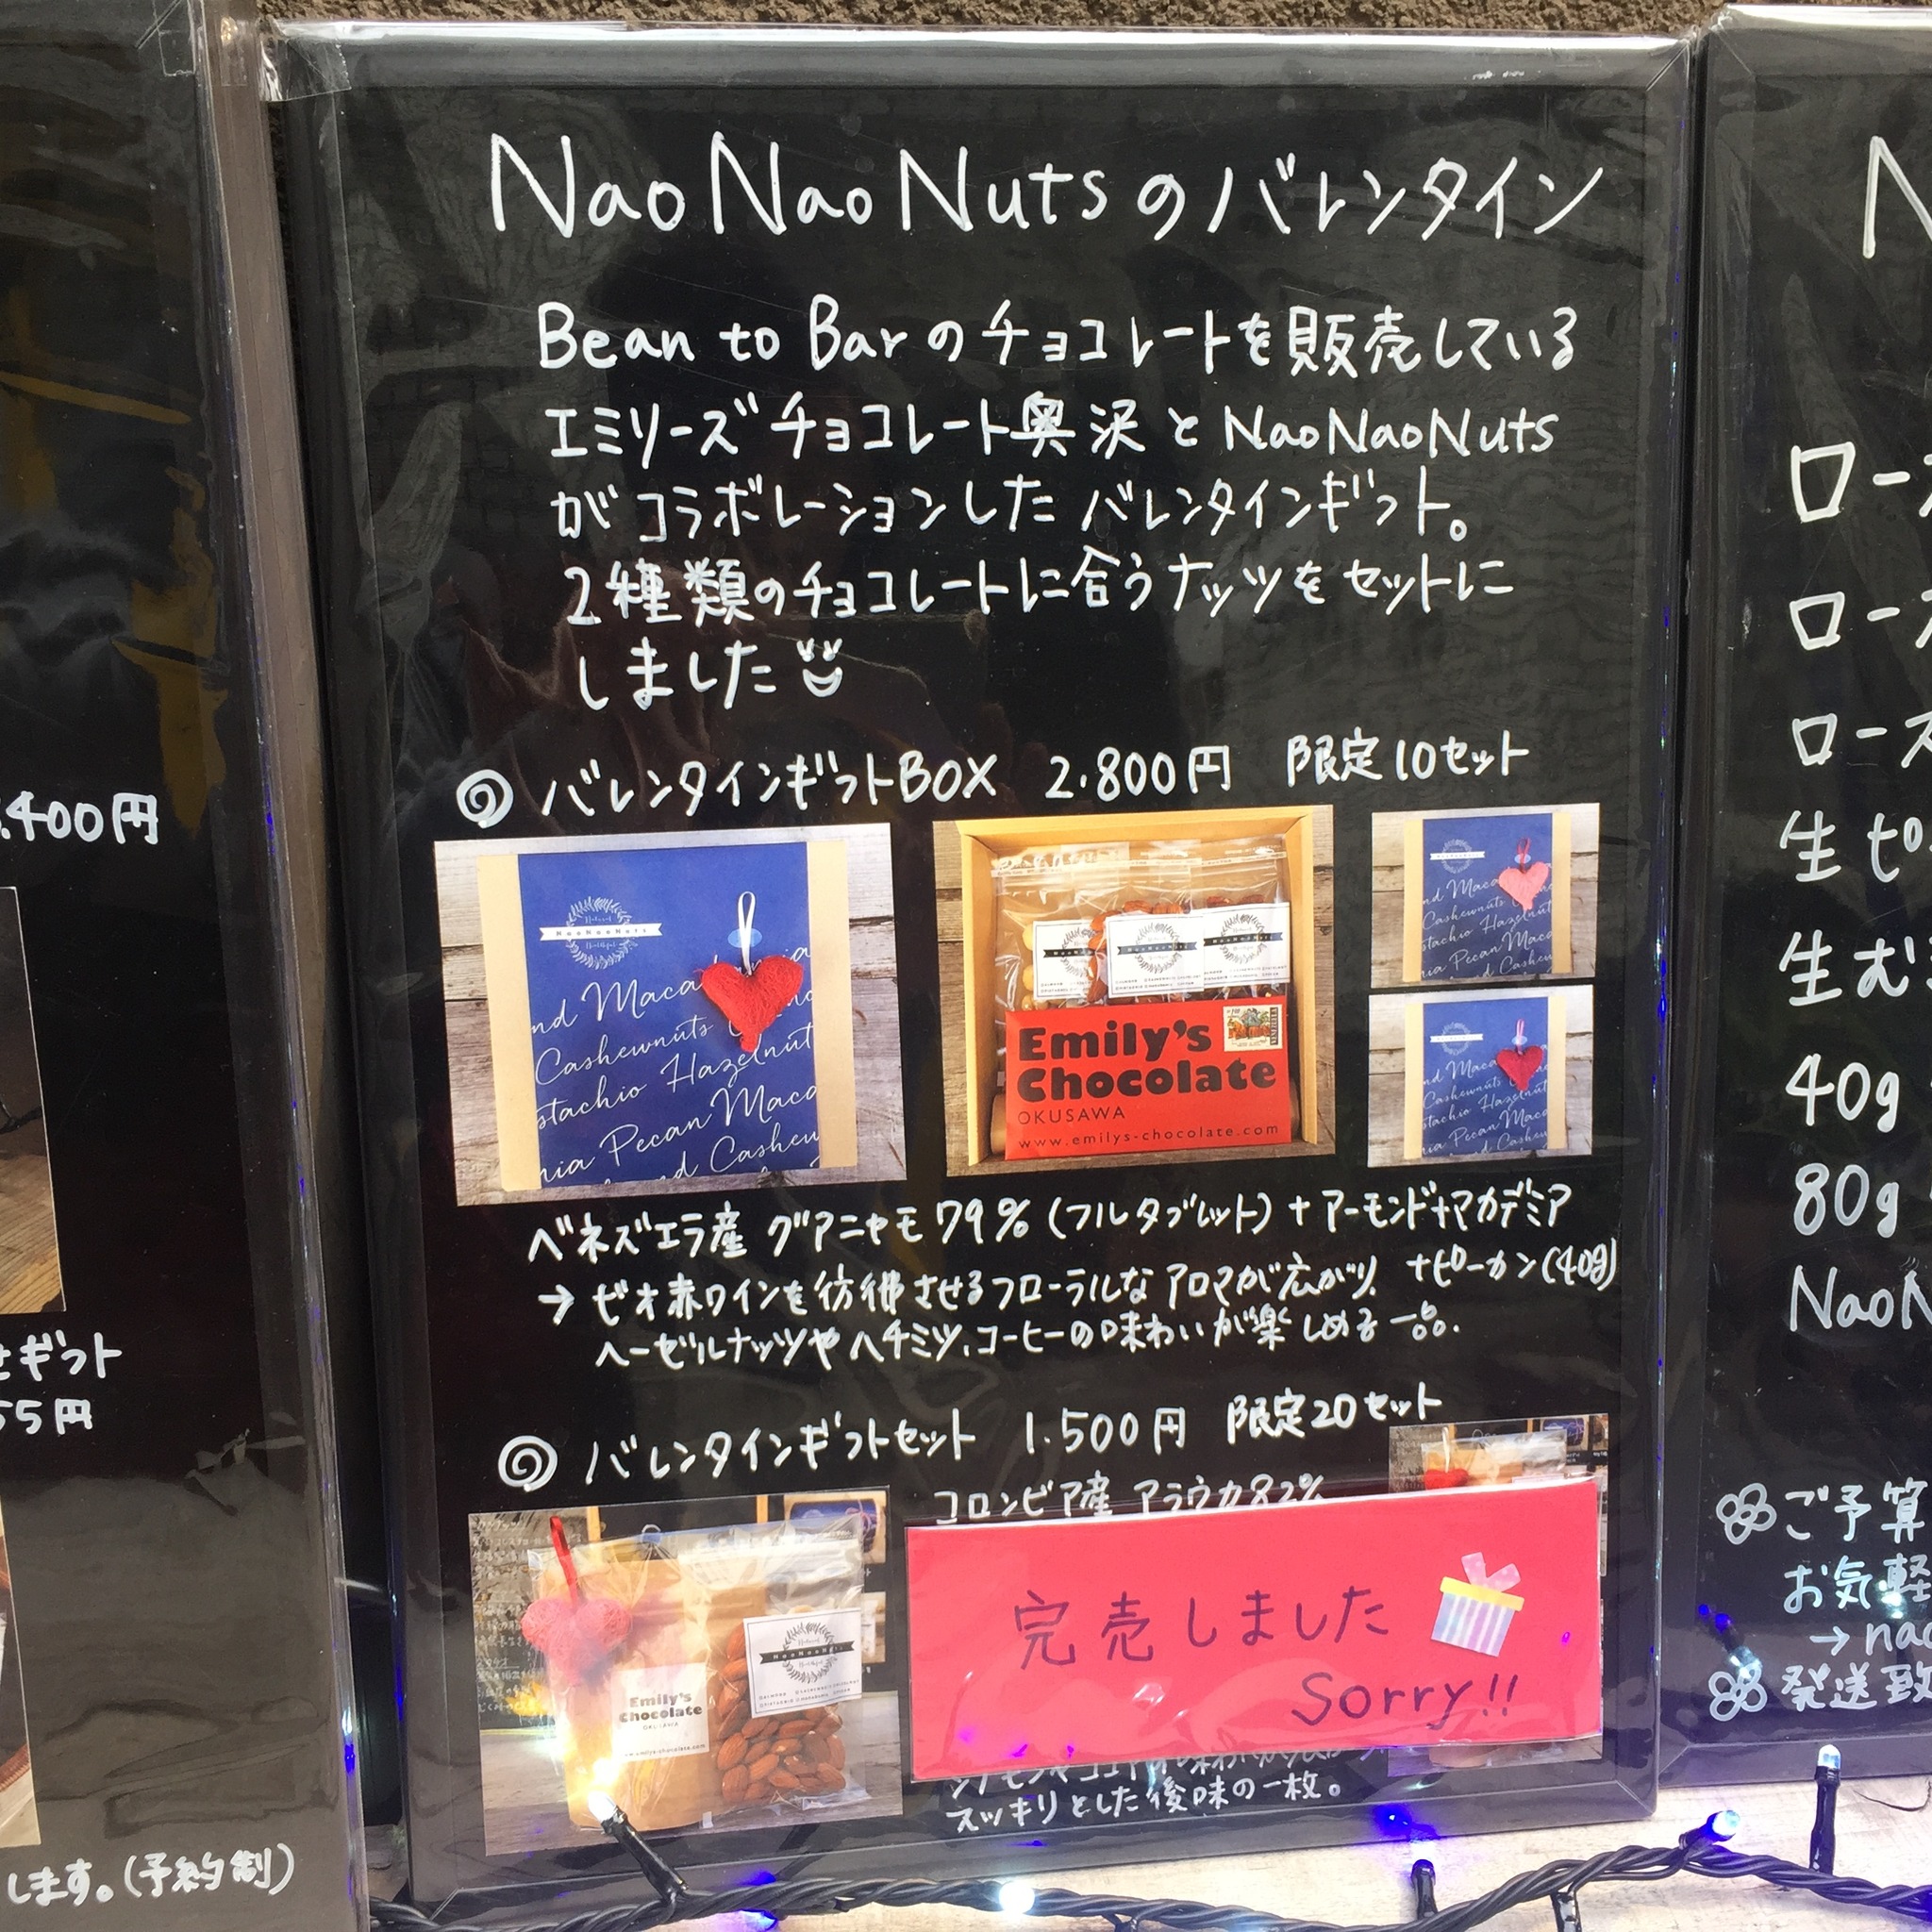 Nao Nao Nuts のバレンタイン
Bean to Bar のチョコレートを販売している
エミリーズチョコレート奥沢とNaoNaoNuts
がコラボレーションしたバレンタインギフト。
2種類のチョコレートに合うナッツをセットに
しました
バレンタインギフトBOX 2.800円 限定10セット
NaoNaoNuts
Cashewnuts
Hazelnut
Pecan Maca
Emily's
Chocolate
OKUSAWA
www.emilys-chocolate.com
ベネズエラ産 グアニャモ 79%(フルタブレット)+アーモンド+マカデミア
+ピーカン(40g)
→ビオ赤ワインを彷彿させるフローラルなアロマが広がり、
ヘーゼルナッツやハチミツ、コーヒーの味わいが楽しめる一品。
バレンタインギフトセット 1.500円 限定20セット
コロンビア産 アラウカ82%
完売しました
Sorry!!
Emily's
Chocolate
OKUSAWA
スッキリとした後味の一枚。
.400円
ギフト
55円
します。(予約制)
生
生む
40g
80g
NaoN
ご予算
お気軽
発送致